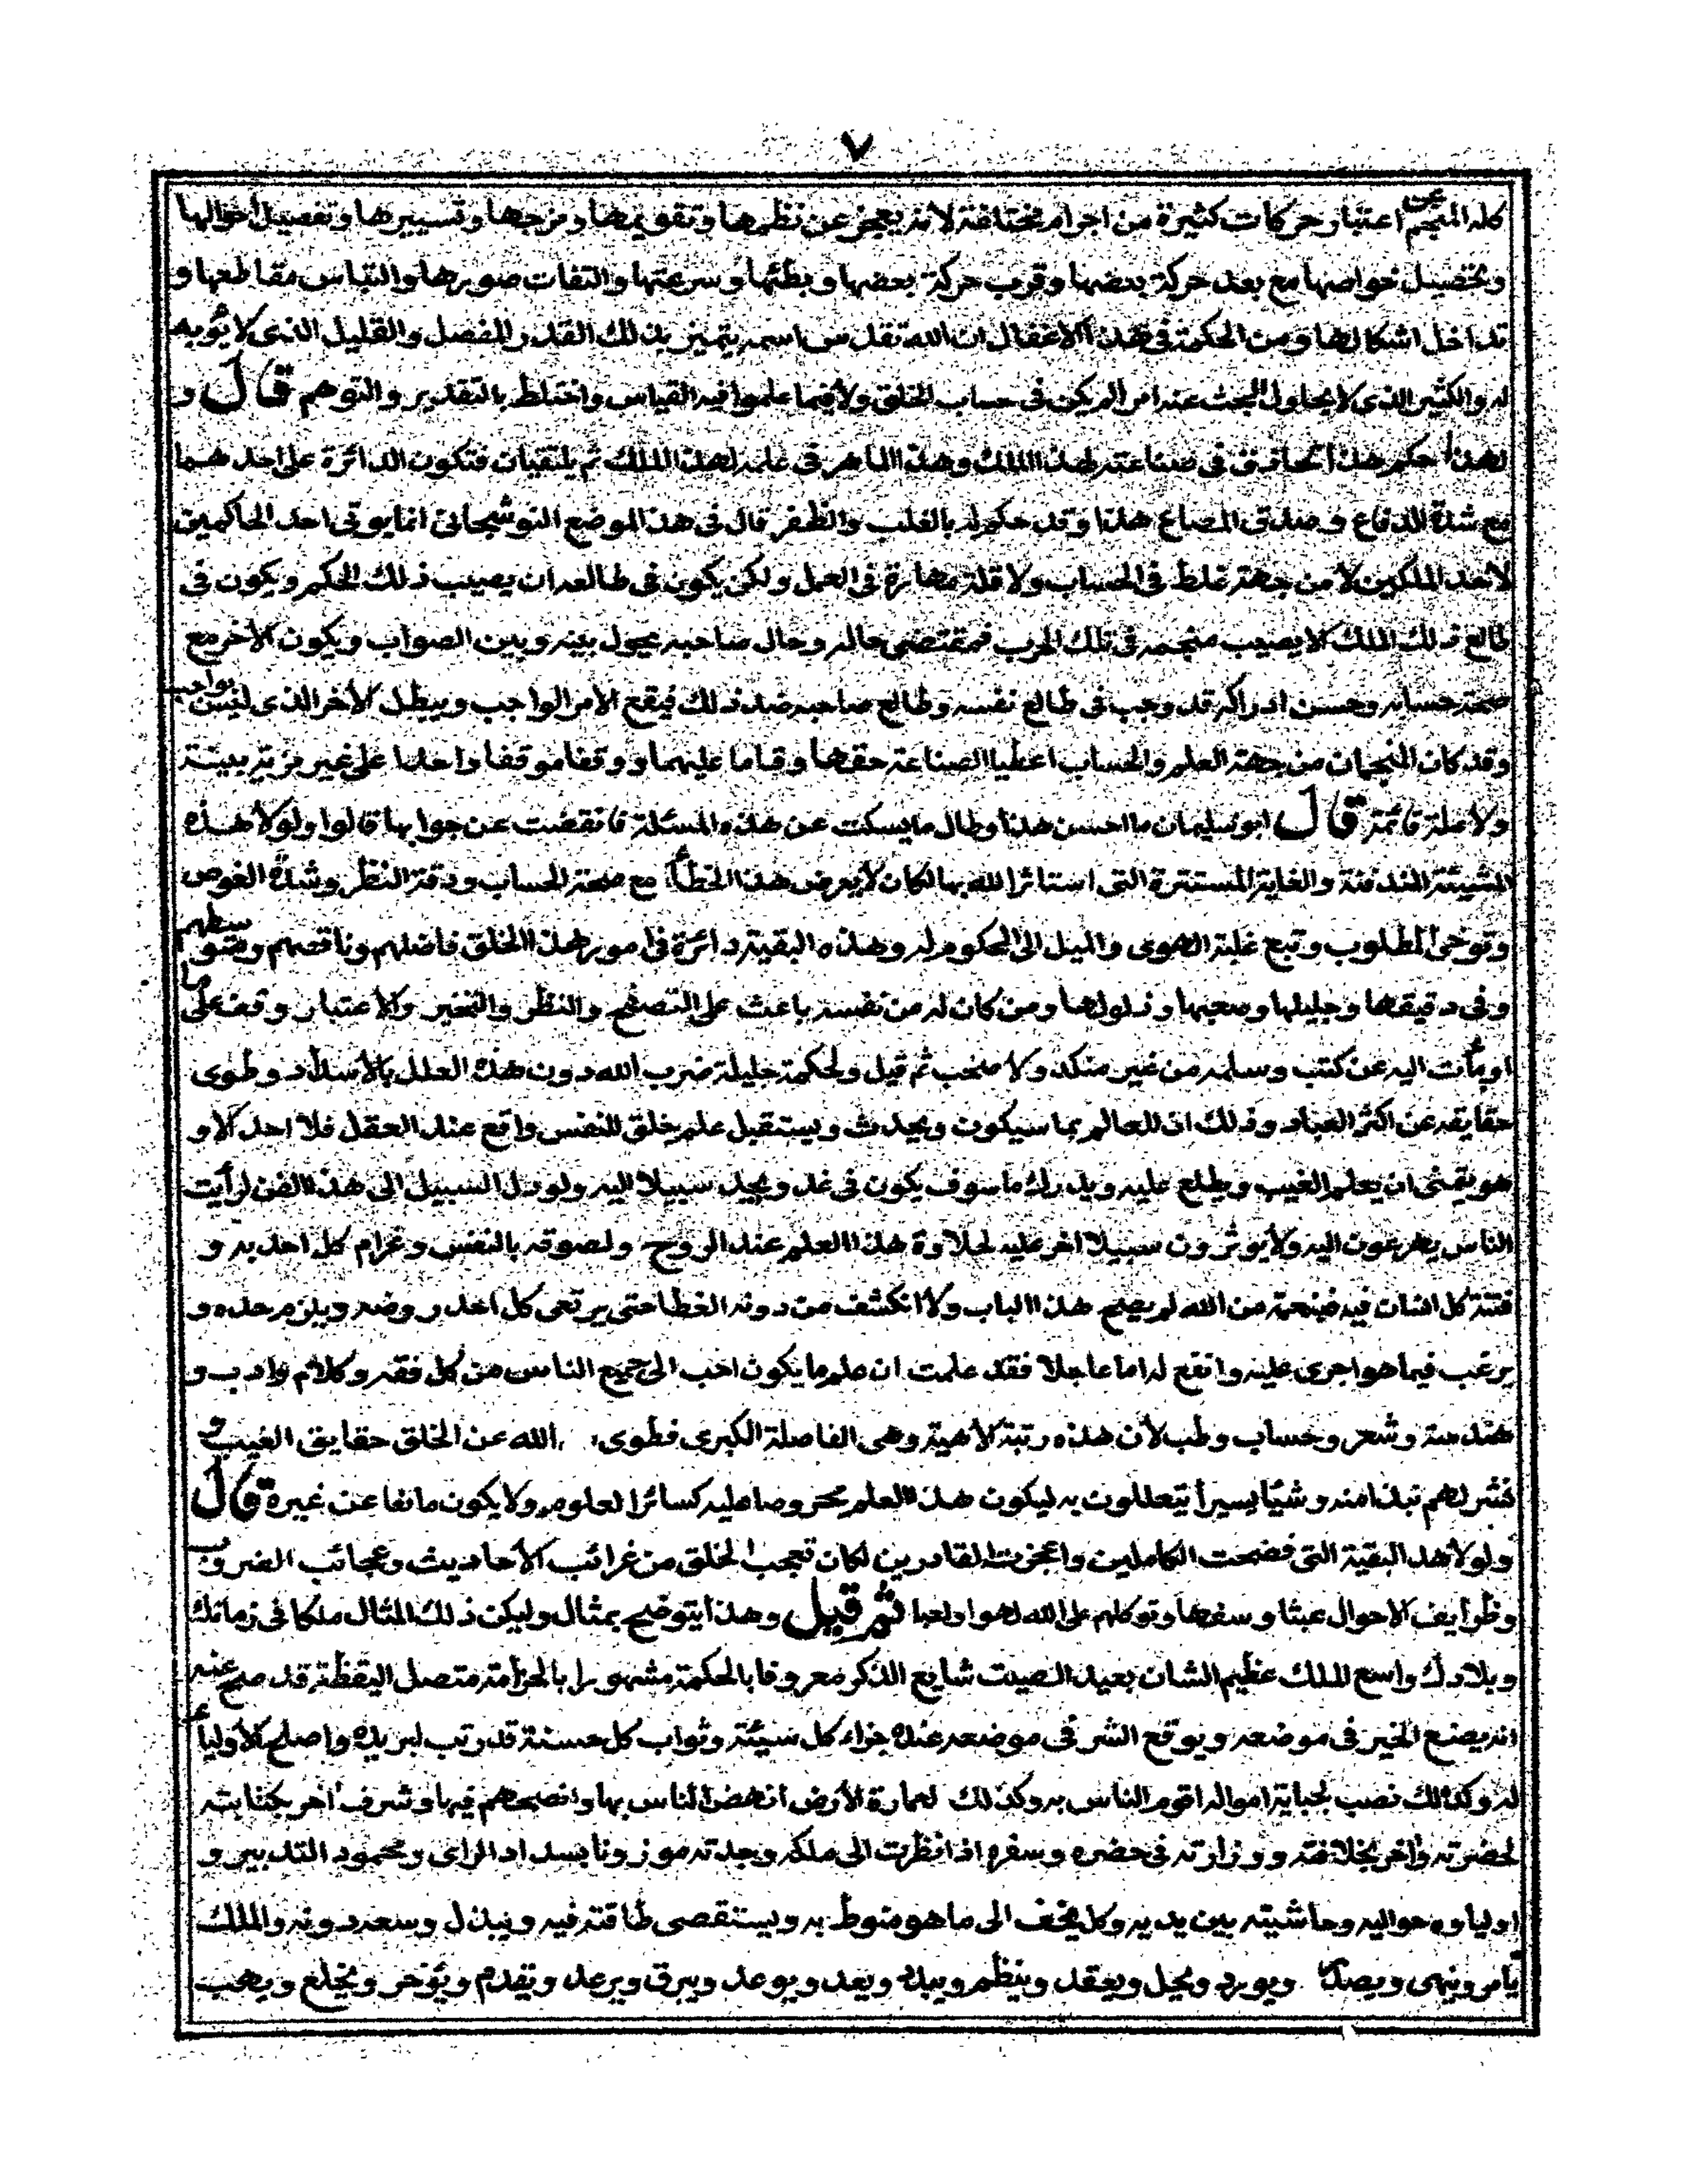 ٧
كله المنجم عن اعتبار حركات كثيرة من اجرام مختلفة لانه يعجز عن نظمها وتقويمها ومزجها وتسييرها وتفصيل احوالها
وتحصيل خواصها مع بعد حركة بعضها وقرب حركة بعضها وبطئها وسرعتها والتفات صورها والتباس مقاطعها و
تداخل اشكالها ومن الحكمة في هذا الاغفال ان الله تقدس اسمه يتميز بذلك القدر المفصل والقليل الذى لا يؤبه
له والكثير الذى لا يحاول البحث عنه امر لم يكن فى حساب الخلق ولا فيما علموا فيه القياس واختلط بالتقدير والتوهم قال و
لهذا حكم هذا الحاذق فى صناعته لهذا الملك وهذا الماهر فى علمه لهذا الملك ثم يلتقيان فتكون الدائرة على احدهما
مع شدة الدفاع وصدق المصاع هذا وقد حكم له بالغلب والظفر قال فى هذا الموضع النوشجانى انما يوتى احد الحاكمين
لاحد الملكين لا من جهة غلط فى الحساب ولا قلة مهارة فى العمل ولكن يكون فى طالعه ان يصيب ذلك الحكم ويكون فى
طالع ذلك الملك لا يصيب منجمه فى تلك الحرب فمقتضى حاله وحال صاحبه يحول بينه وبين الصواب ويكون الاخر مع
صحة حسابه وحسن ادراكه قد وجب فى طالع نفسه وطالع صاحبه ضد ذلك فيقع الامر الواجب ويبطل الاخر الذى ليس بواجب
وقد كان المنجمان من جهة العلم والحساب اعطيا الصناعة حقها وقاما عليهما ووقفا موقفا واحدا على غير مزية بينة
ولا علة قائمة قال ابو سليمان ما احسن هذا وطال ما يسكت عن هذه المسئلة فانفضت عن جوابها قالوا ولولا هذه
المشيئة المندفنة والغاية المستترة التى استاثر الله بها لكان لا يعرض هذا الخطأ مع صحة الحساب ودقة النظر وشدة الغوص
وتوخى المطلوب وتبع غلبة الهوى والميل الى المحكوم له وهذه البقية دائرة فى امور هذا الخلق فاضلهم وناقصهم ومتوسطهم
وفى دقيقها وجليلها وصعبها وذلولها ومن كان له من نفسه باعث على التصفح والنظر والتخير والاعتبار وقف على ما
اومأت اليه عن كثب وسلمه من غير منكد ولا صخب ثم قيل ولحكمة جليلة ضرب الله دون هذه العلل بالاسداد وطوى
حقايقه عن اكثر العباد وذلك ان للعالم بما سيكون ويحدث ويستقبل علم خلق للنفس واقع عند العقل فلا احد الا و
هو يتمنى ان يعلم الغيب ويطلع عليه ويدرك ما سوف يكون فى غد ويجد سبيلا اليه ولو دل السبيل الى هذا الفن لرأيت
الناس يهرعون اليه ولا يوثرون سبيلا اخر عليه لحلاوة هذا العلم عند الروح ولصوقه بالنفس وغرام كل احد به و
فتنة كل انسان فيه فبنعمة من الله لم يصح هذا الباب ولا انكشف من دونه الغطا حتى يرتعى كل احد روضه ويلزم حده و
يرغب فيما هو اجرى عليه وانفع له اما عاجلا فقد علمت ان علم ما يكون احب الى جميع الناس من كل فقه وكلام وادب و
هندسة وشعر وحساب وطب لأن هذه رتبة الاهية وهى الفاصلة الكبرى فطوى الله عن الخلق حقايق الغيب و
نشر لهم نبذا منه وشيئا يسيرا يتعللون به ليكون هذا العلم محروصا عليه كسائر العلوم ولا يكون مانعا عن غيره قال
ولولا هذه البقية التى فضحت الكاملين واعجزت القادرين لكان تعجب الخلق من غرائب الأحاديث وعجائب الضروب
وظرايف الاحوال عبثا وسفها وتوكلهم على الله لهوا ولعبا ثم قيل وهذا يتوضح بمثال وليكن ذلك المثال ملكا فى زمانك
وبلادك واسع الملك عظيم الشان بعيد الصيت شايع الذكر معروفا بالحكمة مشهورا بالحزامة متصل اليقظة قد صح عنه
انه يصنع الخير فى موضعه ويوقع الشر فى موضعه عنده جزاء كل سيئة وثواب كل حسنة قد رتب لبريده واصلح الأولياء
له وكذلك نصب لجباية امواله اقوم الناس به وكذلك لعمارة الأرض انهض الناس بها وانصحهم فيها وشرف اخر بكتابته
لحضرته واخر بخلافته ووزارته فى حضره وسفره اذا نظرت الى ملكه وجدته موزونا بسداد الراى ومحمود التدبير و
اولياوه حواليه وحاشيته بين يديه وكل يخف الى ما هو منوط به ويستقصى طاقته فيه ويبذل وسعه دونه والملك
يأمر وينهى ويصدر ويورد ويحل ويعقد وينظم ويبدد ويعد ويوعد ويبرق ويرعد ويقدم ويؤخر ويخلع ويهب